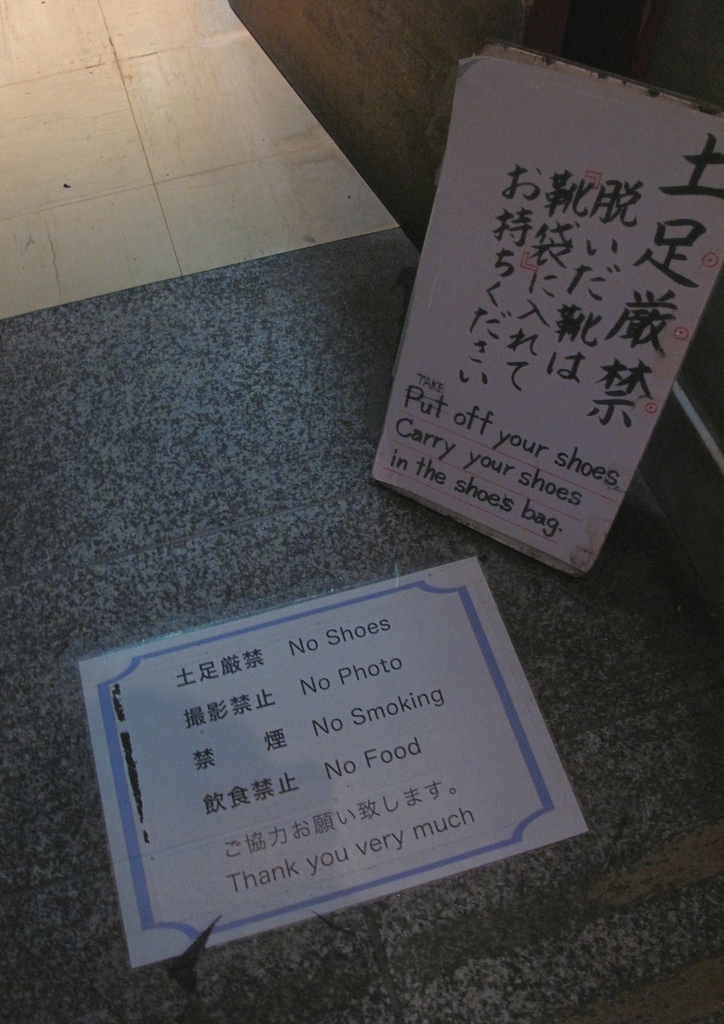 土足厳禁
脱いだ靴は
『靴袋』に入れて
お持ちください
TAKE
Put off your shoes.
Carry your shoes
in the shoes bag.
土足厳禁 No Shoes
撮影禁止 No Photo
禁 煙 No Smoking
飲食禁止 No Food
ご協力お願い致します。
Thank you very much